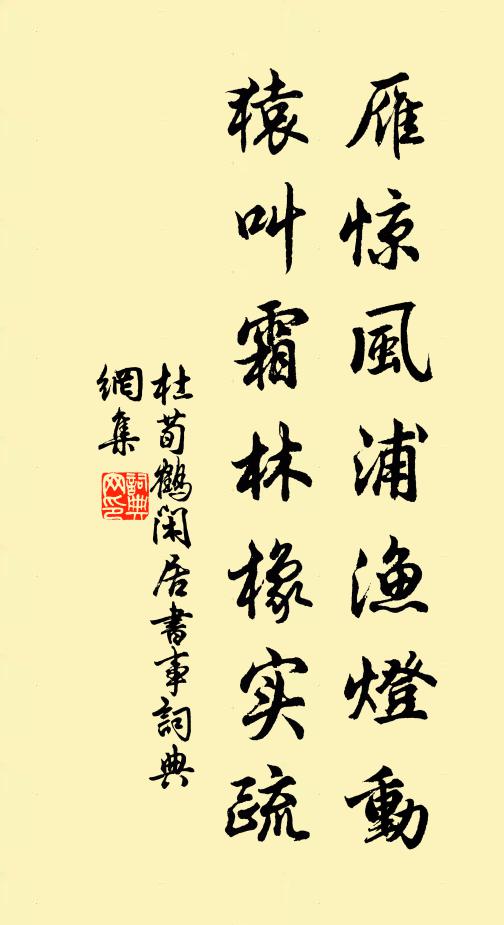 雁惊風浦漁燈動
猿叫霜林橡实疏
杜荀鶴閑居書事詞典
網集
詞典
网印